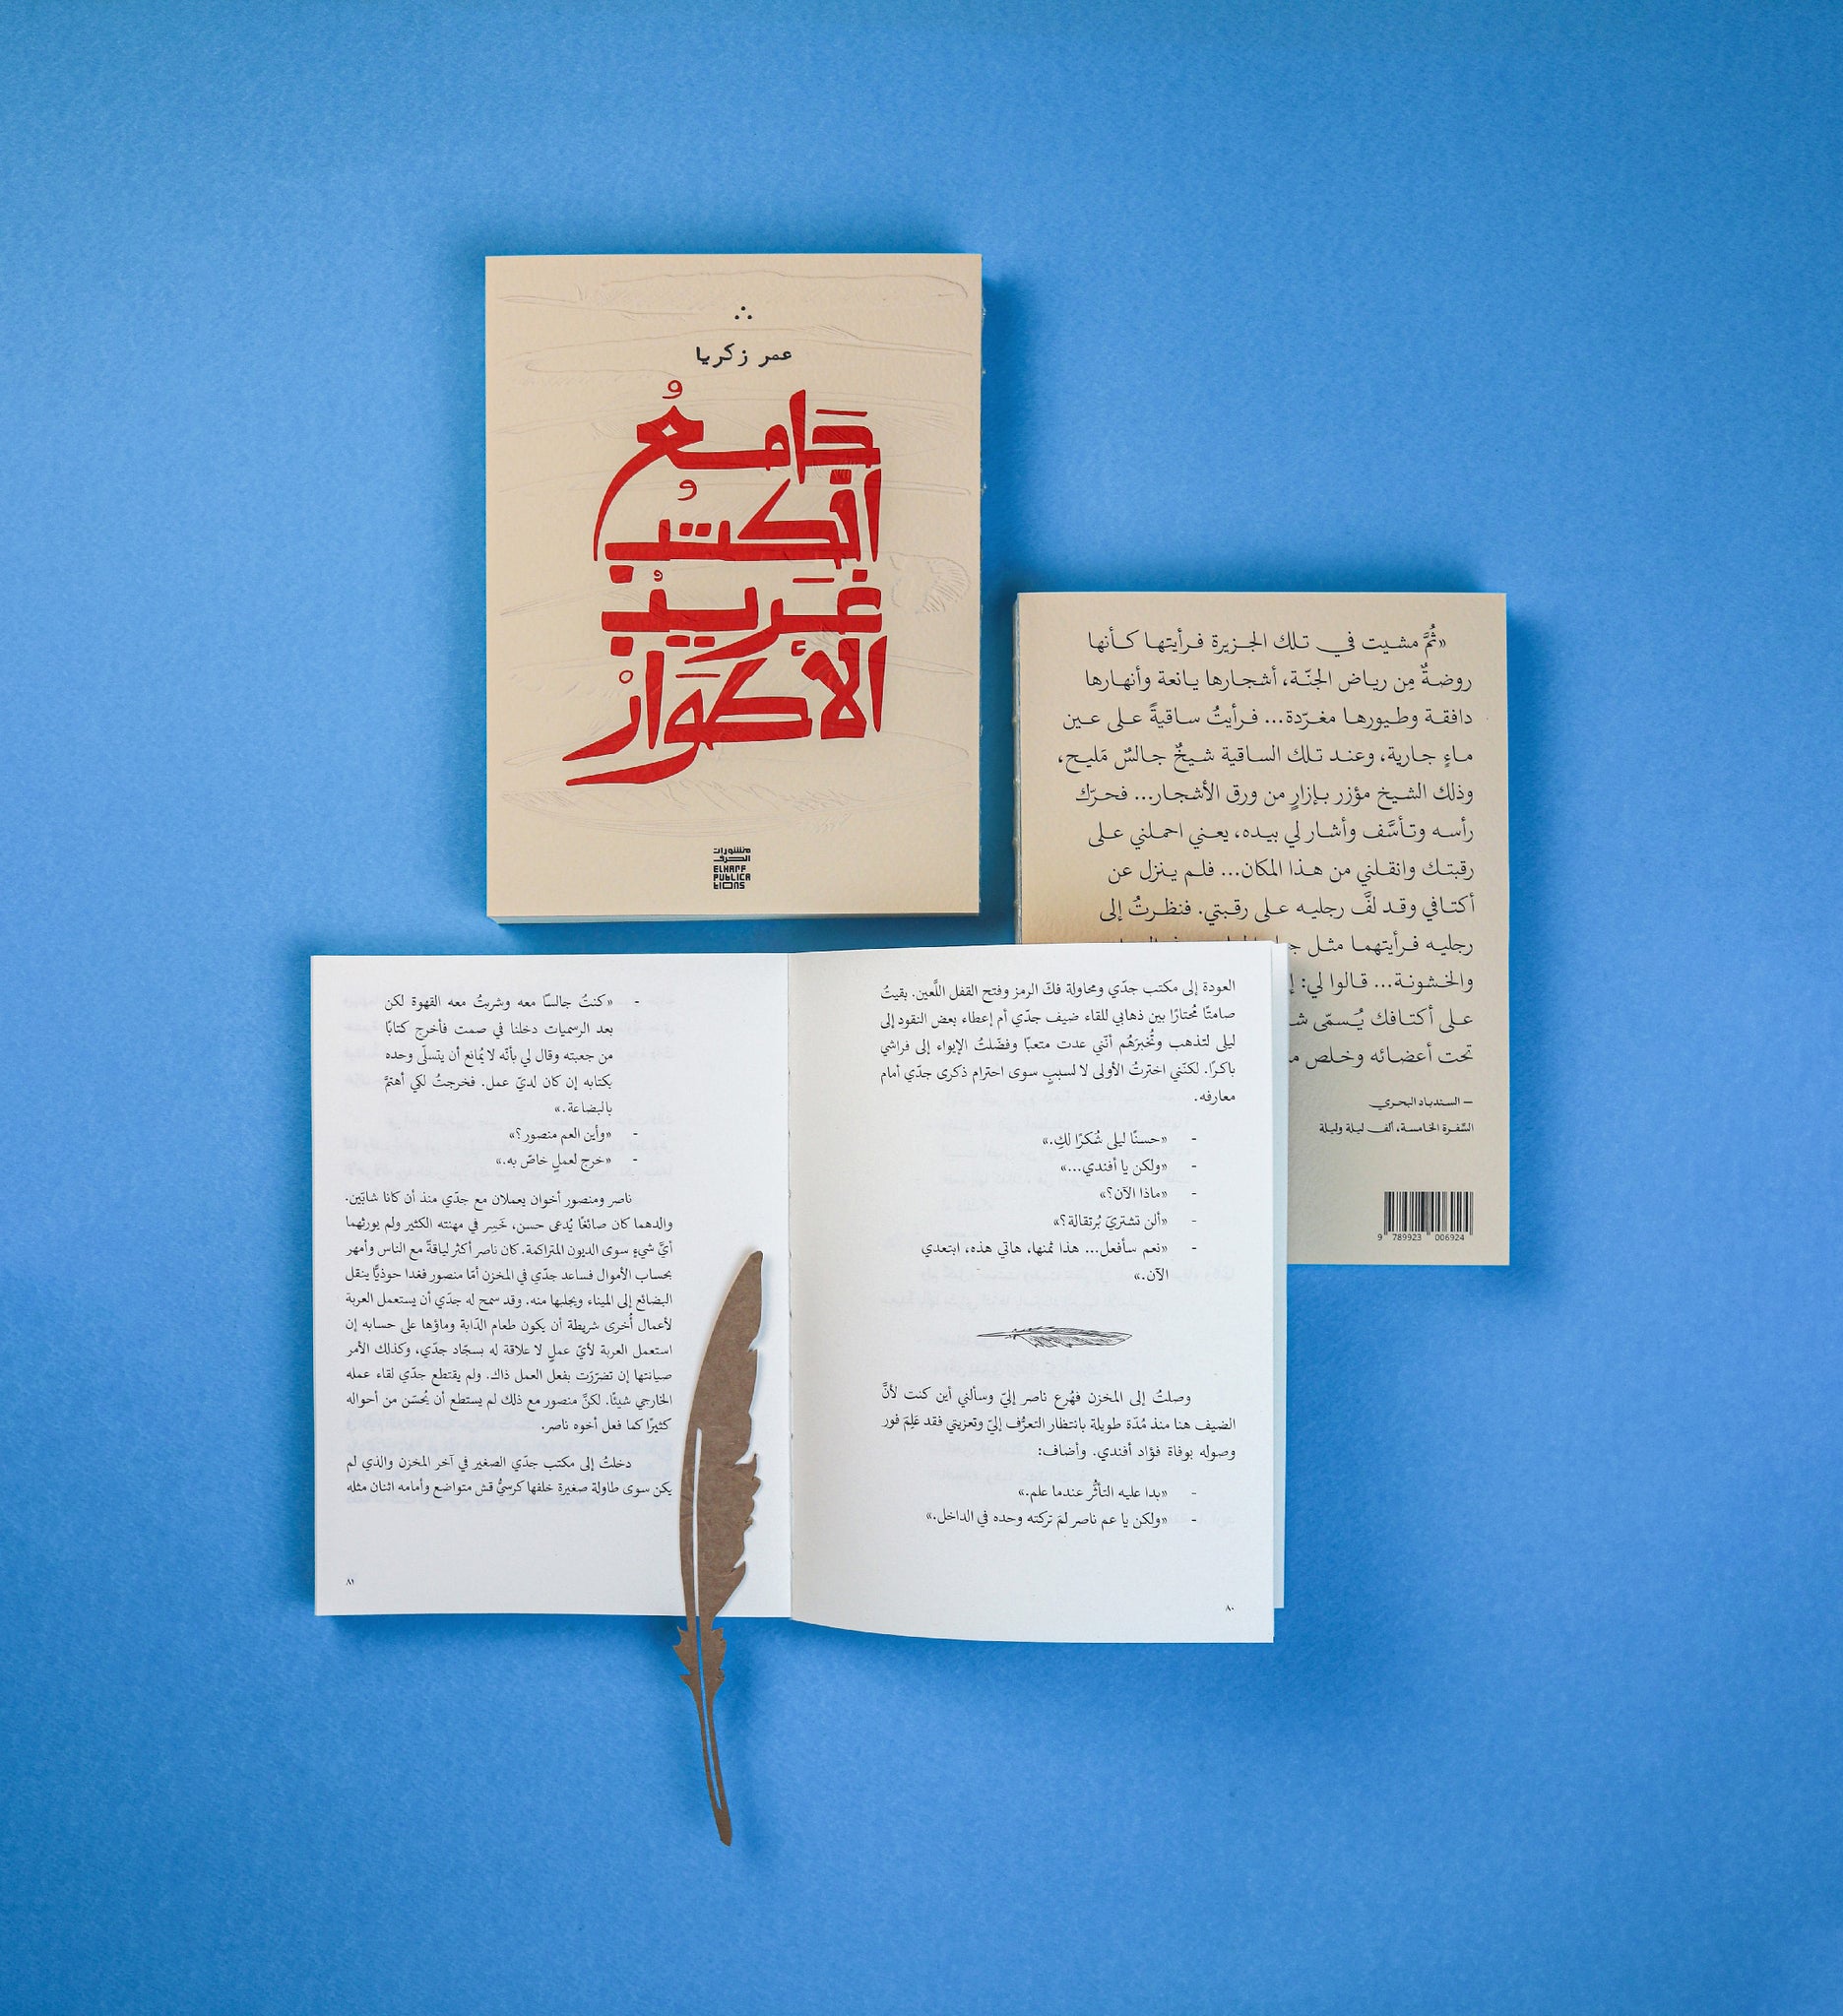 عمر زكريا
دَامغُ
الكتبُ
غَريبُ
الأكوَارْ
منشورات
الحرف
ELHARF
PUBLICA
tIONS
«ثُمَّ مشيت في تلك الجزيرة فرأيتها كأنها
روضةٌ مِن رياض الجنّة، أشجارها يانعة وأنهارها
دافقة وطيورها مغرّدة... فرأيتُ ساقيةً على عين
ماءٍ جارية، وعند تلك الساقية شيخٌ جالسٌ مَليح،
وذلك الشيخ مؤزر بإزارٍ من ورق الأشجار... فحرّك
رأسه وتأسَّف وأشار لي بيده، يعني احملني على
رقبتك وانقلني من هذا المكان... فلم ينزل عن
أكتافي وقد لفَّ رجليه على رقبتي. فنظرتُ إلى
رجليه فرأيتهما مثل
والخشونة... قالوا لي:
على أكتافك يُسمّى
تحت أعضائه وخلص
— السندباد البحري
السَّفرة الخامسة، ألف ليلة وليلة
9 789923 006924
العودة إلى مكتب جدّي ومحاولة فكّ الرمز وفتح القفل اللَّعين. بقيتُ
صامتًا مُحتارًا بين ذهابي للقاء ضيف جدّي أم إعطاء بعض النقود إلى
ليلى لتذهب وتُخبرَهُم أنّني عدت متعبًا وفضّلتُ الإيواء إلى فراشي
باكرًا. لكنّني اخترتُ الأولى لا لسببٍ سوى احترام ذكرى جدّي أمام
معارفه.
- «حسنًا ليلى شُكرًا لكِ.»
- «ولكن يا أفندي...»
- «ماذا الآن؟»
- «ألن تشتريَ بُرتقالة؟»
- «نعم سأفعل... هذا ثمنها، هاتي هذه، ابتعدي
الآن.»
وصلتُ إلى المخزن فهُرع ناصر إليّ وسألني أين كنت لأنَّ
الضيف هنا منذ مُدّة طويلة بانتظار التعرُّف إليّ وتعزيتي فقد عَلِمَ فور
وصوله بوفاة فؤاد أفندي. وأضاف:
- «بدا عليه التأثُّر عندما علم.»
- «ولكن يا عم ناصر لمَ تركته وحده في الداخل.»
٨٠
- «كنتُ جالسًا معه وشربتُ معه القهوة لكن
بعد الرسميات دخلنا في صمت فأخرج كتابًا
من جعبته وقال لي بأنّه لا يُمانع أن يتسلّى وحده
بكتابه إن كان لديّ عمل. فخرجتُ لكي أهتمَّ
بالبضاعة.»
- «وأين العم منصور؟»
- «خرج لعملٍ خاصّ به.»
ناصر ومنصور أخوان يعملان مع جدّي منذ أن كانا شابّين.
والدهما كان صائغًا يُدعى حسن، خَسِر في مهنته الكثير ولم يورثهما
أيَّ شيءٍ سوى الديون المتراكمة. كان ناصر أكثر لياقةً مع الناس وأمهر
بحساب الأموال فساعد جدّي في المخزن أمّا منصور فغدا حوذيًّا ينقل
البضائع إلى الميناء ويجلبها منه. وقد سمح له جدّي أن يستعمل العربة
لأعمال أُخرى شريطة أن يكون طعام الدّابة وماؤها على حسابه إن
استعمل العربة لأيّ عملٍ لا علاقة له بسجّاد جدّي، وكذلك الأمر
صيانتها إن تضرّرَت بفعل العمل ذاك. ولم يقتطع جدّي لقاء عمله
الخارجي شيئًا. لكنَّ منصور مع ذلك لم يستطع أن يُحسّن من أحواله
كثيرًا كما فعل أخوه ناصر.
دخلتُ إلى مكتب جدّي الصغير في آخر المخزن والذي لم
يكن سوى طاولة صغيرة خلفها كرسيُّ قش متواضع وأمامه اثنان مثله
٨١